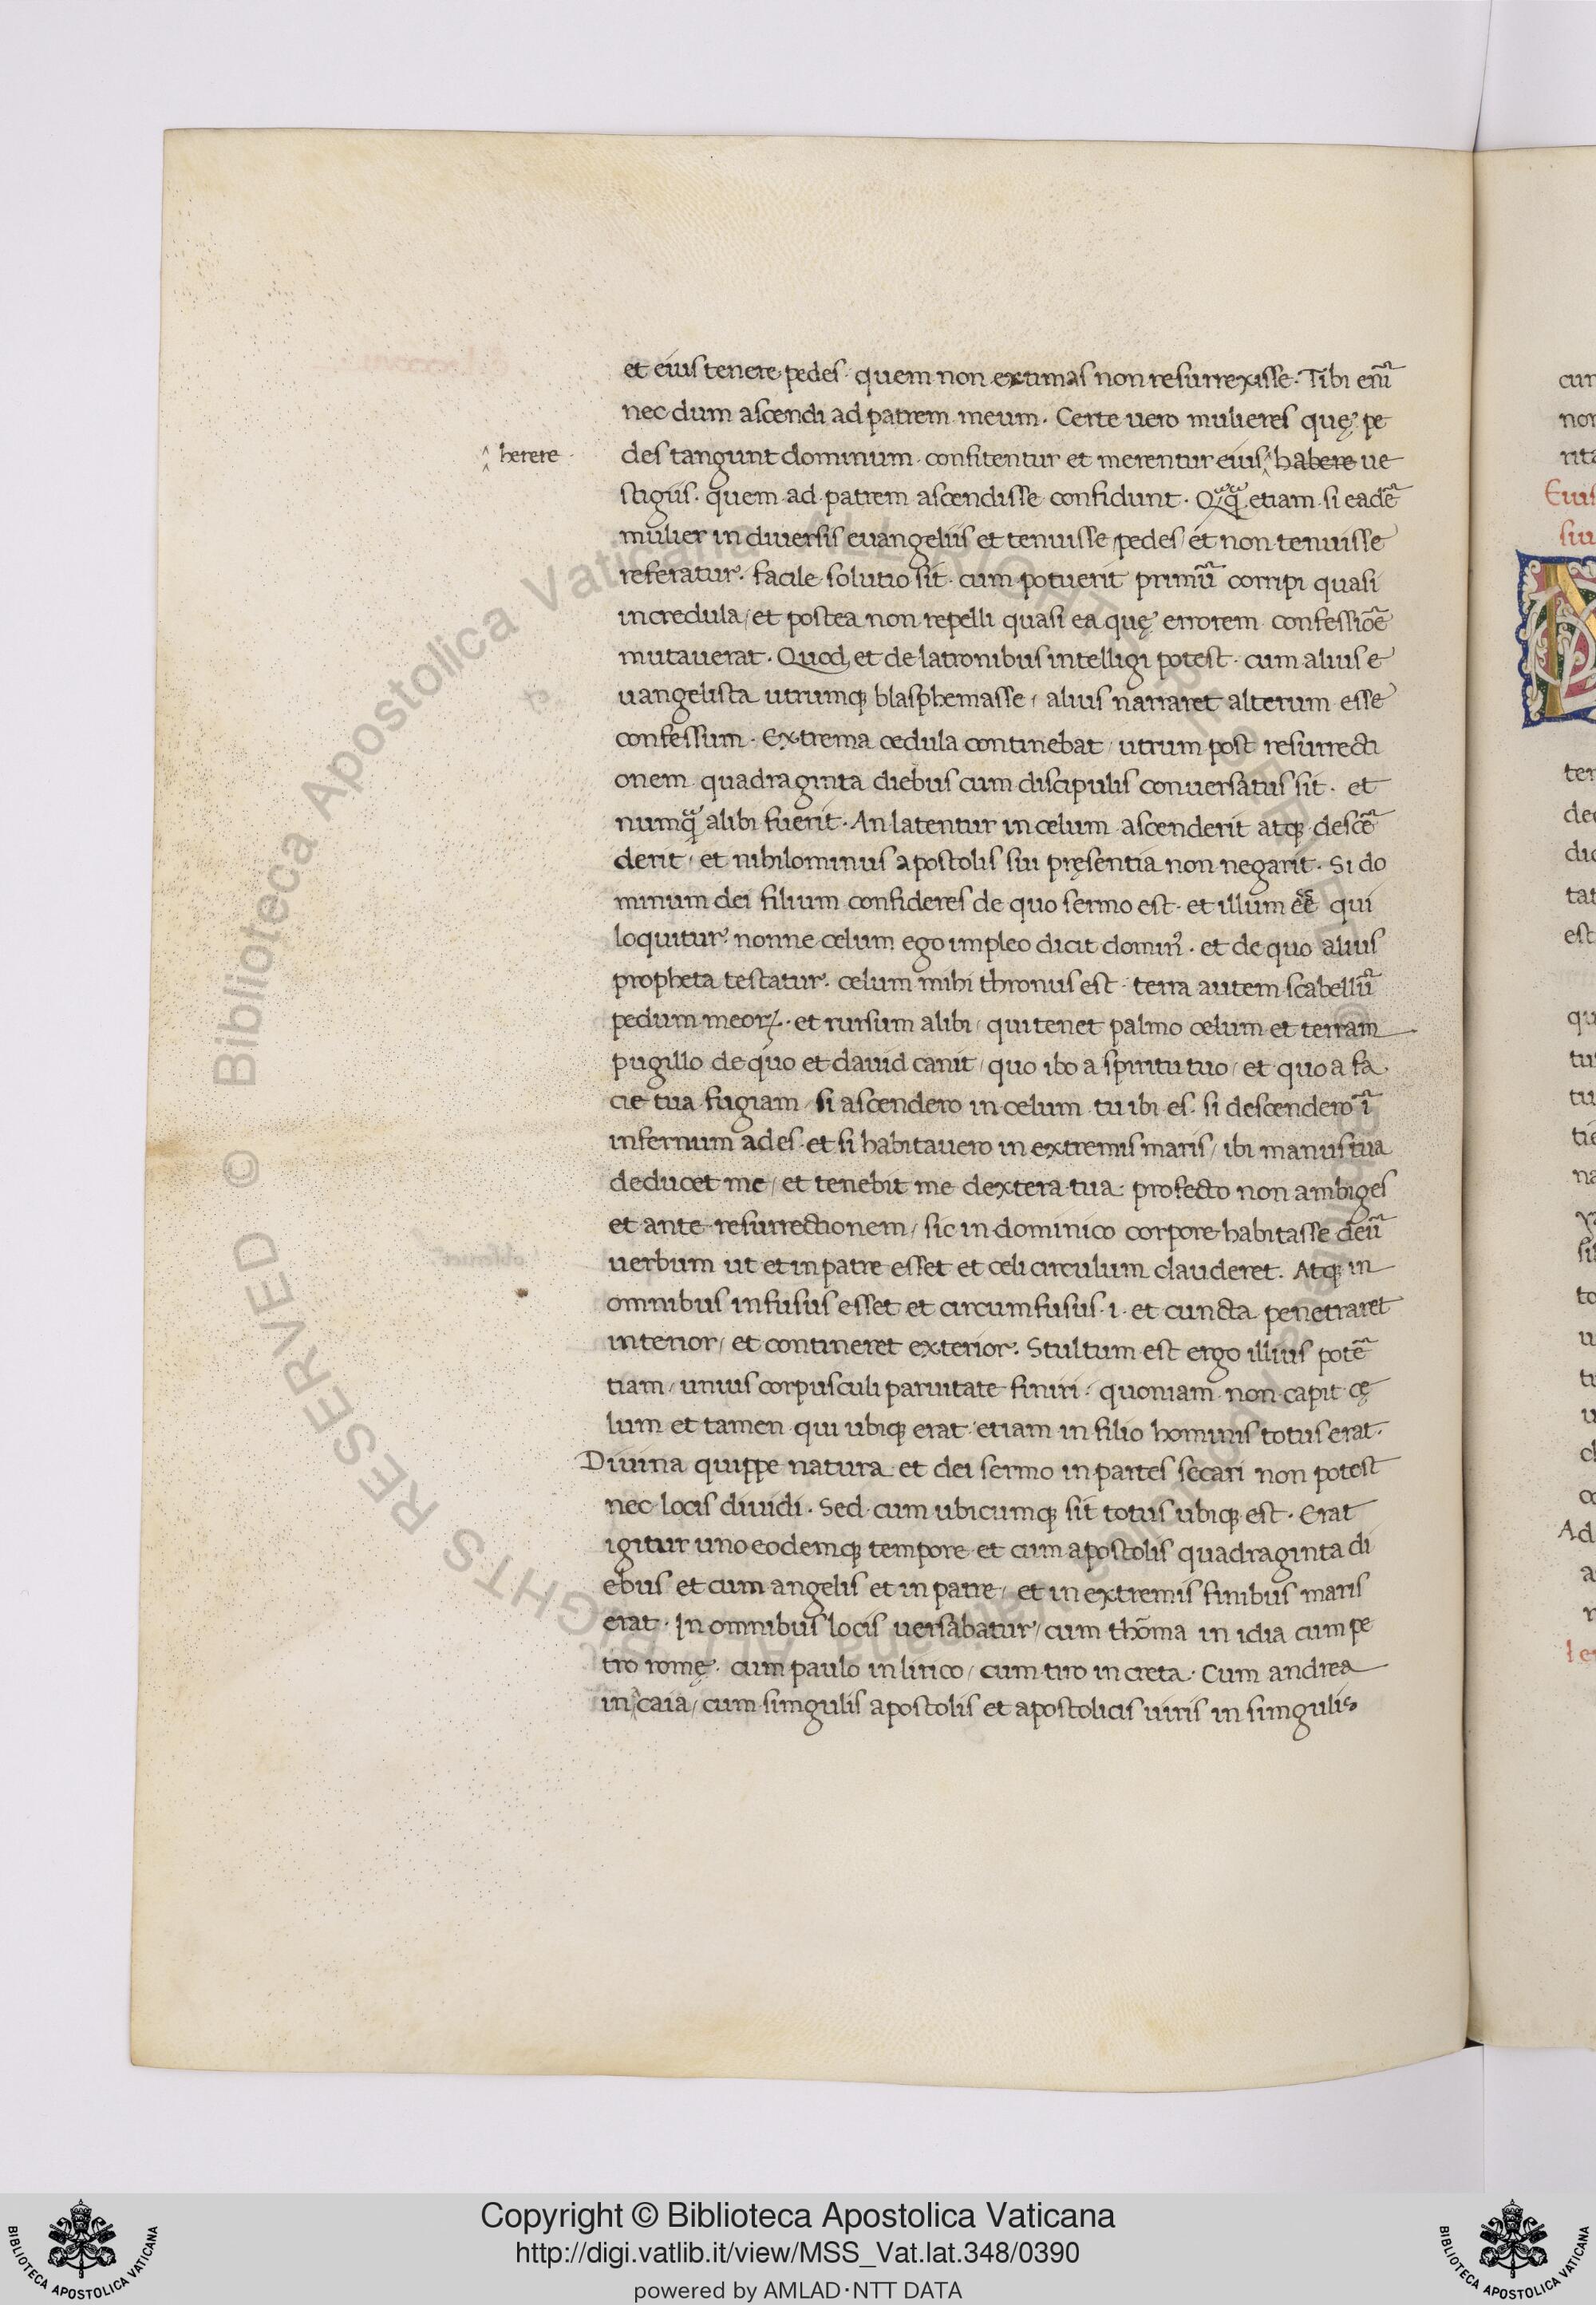 et eius tenere pedes · quem non extimas non resurrexisse · Tibi eni᷉
nec dum ascendi ad patrem meum · Certe uero mulieres quę pe
‸ herere ·
des tangunt dominum · confitentur et merentur eius ‸ habere ue
stigiis · quem ad patrem ascendisse confidunt · Qꝗ etiam si eadē
mulier in diuersis euangeliis et tenuisse pedes et non tenuisse
referatur · facile solutio sit · cum potuerit primū corripi quasi
incredula / et postea non repelli quasi ea quę errorem confessiōe
mutauerat · Quod et de latronibus intelligi potest · cum alius e
uangelista utrumqꝫ blasphemasse / alius narraret alterum esse
confessum · Extrema cedula continebat / utrum post resurrecti
onem quadraginta diebus cum discipulis conuersatus sit · et
numꝗ alibi fuerit · An latentur in celum ascenderit atqꝫ descē
derit / et nihilominus apostolis sui pręsentia non negarit · Si do
minum dei filium confideres de quo sermo est · et illum eē qui
loquitur · nonne celum ego impleo dicit dominꝰ · et de quo alius
propheta testatur · celum mihi thronus est · terra autem scabellū
pedum meoꝝ · et rursum alibi / qui tenet palmo celum et terram
pugillo de quo et dauid canit / quo ibo a spiritu tuo / et quo a fa
cie tua fugiam / si ascendero in celum tu ibi es · si descendero ī
infernum ades · et si habitauero in extremis maris / ibi manus tua
deducet me / et tenebit me dextera tua · profecto non ambiges
et ante resurrectionem / sic in dominico corpore habitasse deū
uerbum ut et in patre esset et celi circulum clauderet · Atqꝫ in
omnibus infusus esset et circumfusus · i · et cuncta penetraret
interior / et contineret exterior · Stultum est ergo illius potē
tiam / unius corpusculi paruitate finiri · quoniam non capit cę
lum et tamen qui ubiqꝫ erat · etiam in filio hominis totus erat ·
Diuina quippe natura et dei sermo in partes secari non potest
nec locis diuidi · Sed cum ubicumqꝫ sit totus ubiqꝫ est · Erat
igitur uno eodemqꝫ tempore et cum apostolis quadraginta di
ebus et cum angelis et in patre / et in extremis finibus maris
erat · In omnibus locis uersabatur / cum thōma in idia cum pe
tro romę · cum paulo in lirico / cum tito in creta · Cum andrea
in ‸ caia / cum simgulis apostolis et apostolicis uiris in simgulis
Copyright © Biblioteca Apostolica Vaticana
http://digi.vatlib.it/view/MSS_Vat.lat.348/0390
powered by AMLAD·NTT DATA
BIBLIOTECA APOSTOLICA VATICANA
BIBLIOTECA APOSTOLICA VATICANA
© Biblioteca Apostolica Vaticana ALL RIGHTS RESERVED